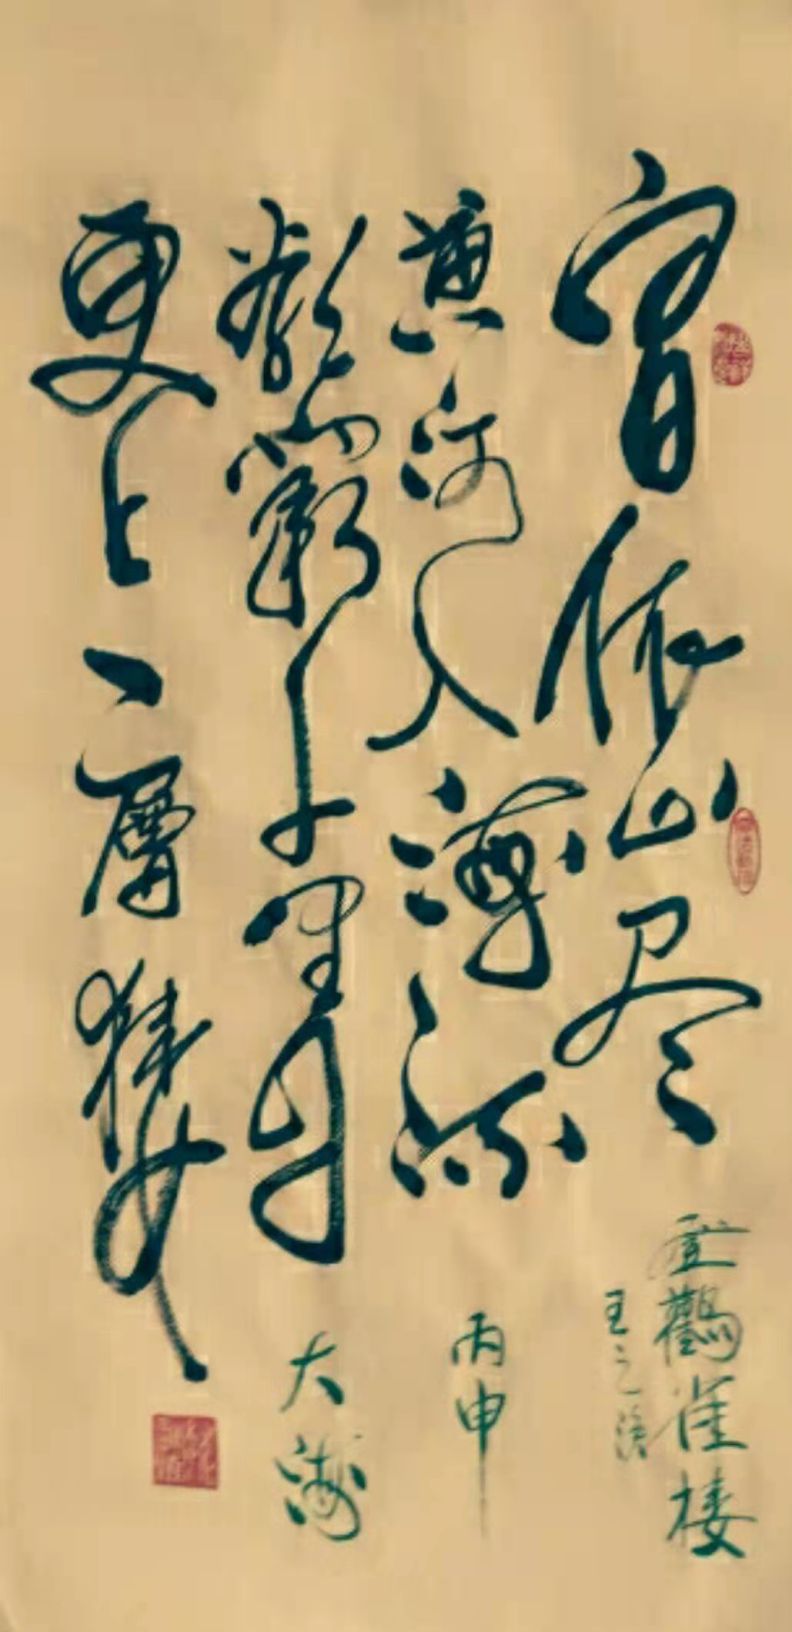 白日依山尽
登鸛雀楼
王之渙
黄河入海流
丙申
欲窮千里目
大海
更上一層楼